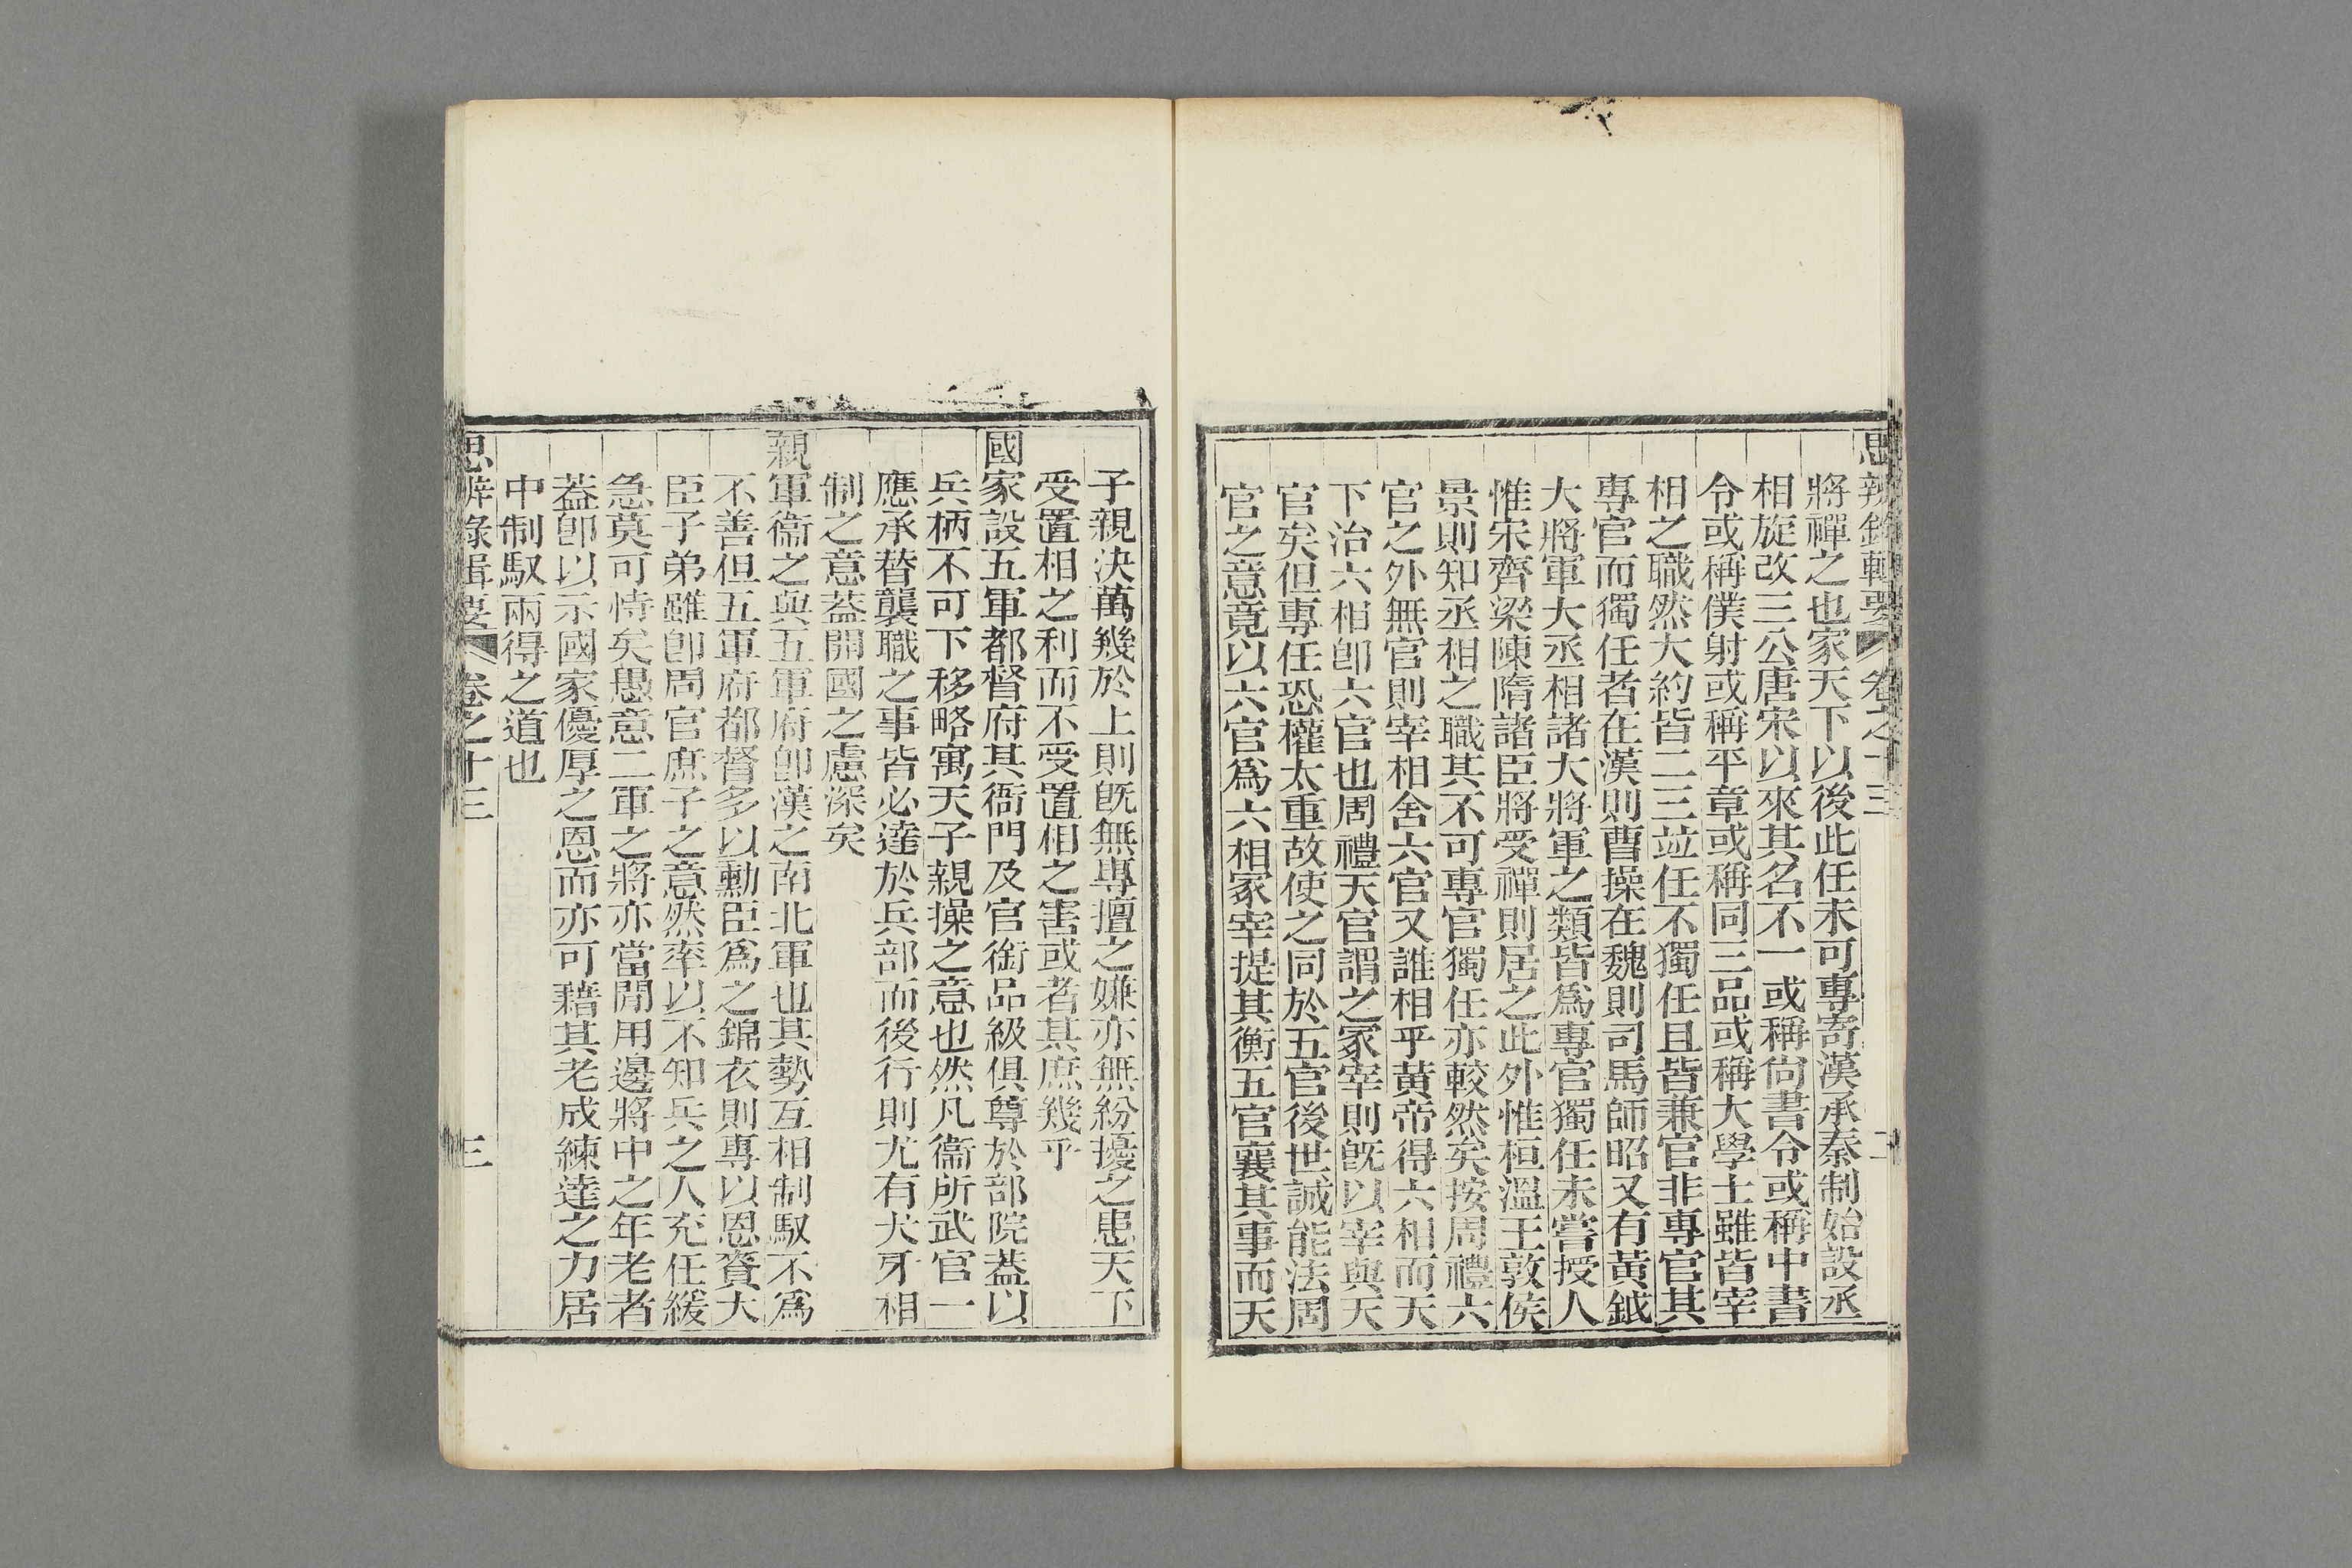 思辨錄輯要 卷之十三 二
將禪之也家天下以後此任未可專寄漢承秦制始設丞
相旋改三公唐宋以來其名不一或稱尙書令或稱中書
令或稱僕射或稱平章或稱同三品或稱大學士雖皆宰
相之職然大約皆二三竝任不獨任且皆兼官非專官其
專官而獨任者在漢則曹操在魏則司馬師昭又有黃鉞
大將軍大丞相諸大將軍之類皆爲專官獨任未嘗授人
惟宋齊梁陳隋諸臣將受禪則居之此外惟桓溫王敦侯
景則知丞相之職其不可專官獨任亦較然矣按周禮六
官之外無官則宰相舍六官又誰相乎黃帝得六相而天
下治六相卽六官也周禮天官謂之冢宰則旣以宰與天
官矣但專任恐權太重故使之同於五官後世誠能法周
官之意竟以六官爲六相冢宰提其衡五官襄其事而天
子親決萬幾於上則旣無專擅之嫌亦無紛擾之患天下
受置相之利而不受置相之害或者其庶幾乎
國家設五軍都督府其衙門及官銜品級俱尊於部院葢以
兵柄不可下移略寓天子親操之意也然凡衞所武官一
應承替襲職之事皆必達於兵部而後行則尤有犬牙相
制之意葢開國之慮深矣
親軍衞之與五軍府卽漢之南北軍也其勢互相制馭不爲
不善但五軍府都督多以勳臣爲之錦衣則專以恩資大
臣子弟雖卽周官庶子之意然率以不知兵之人充任緩
急莫可恃矣愚意二軍之將亦當閒用邊將中之年老者
葢卽以示國家優厚之恩而亦可藉其老成練達之力居
中制馭兩得之道也
思辨錄輯要 卷之十三 三